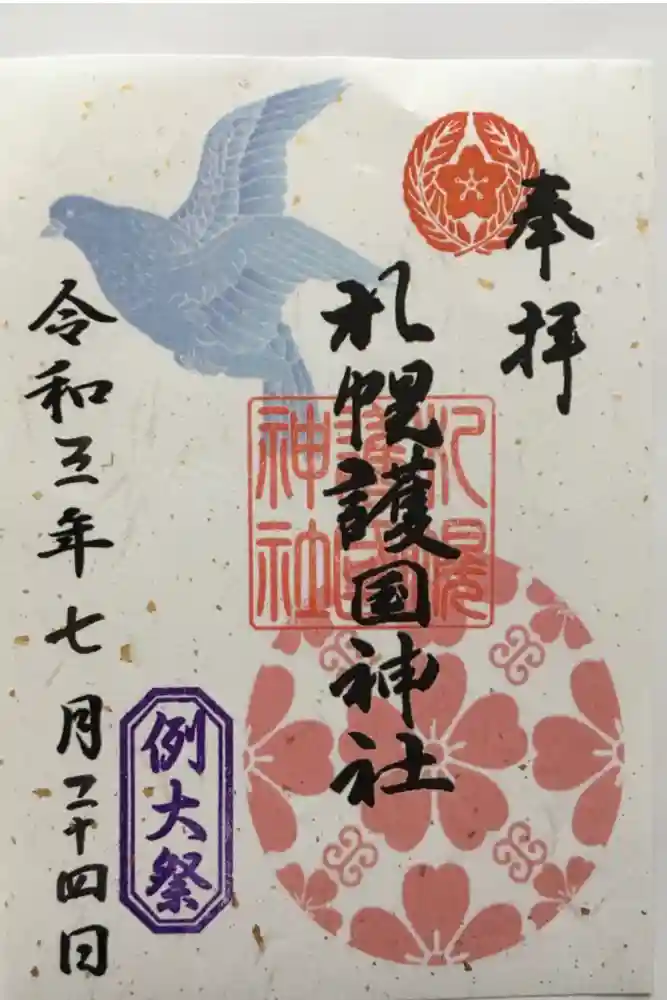 奉拝
札幌護国神社
札幌護国神社
例大祭
令和三年七月二十四日